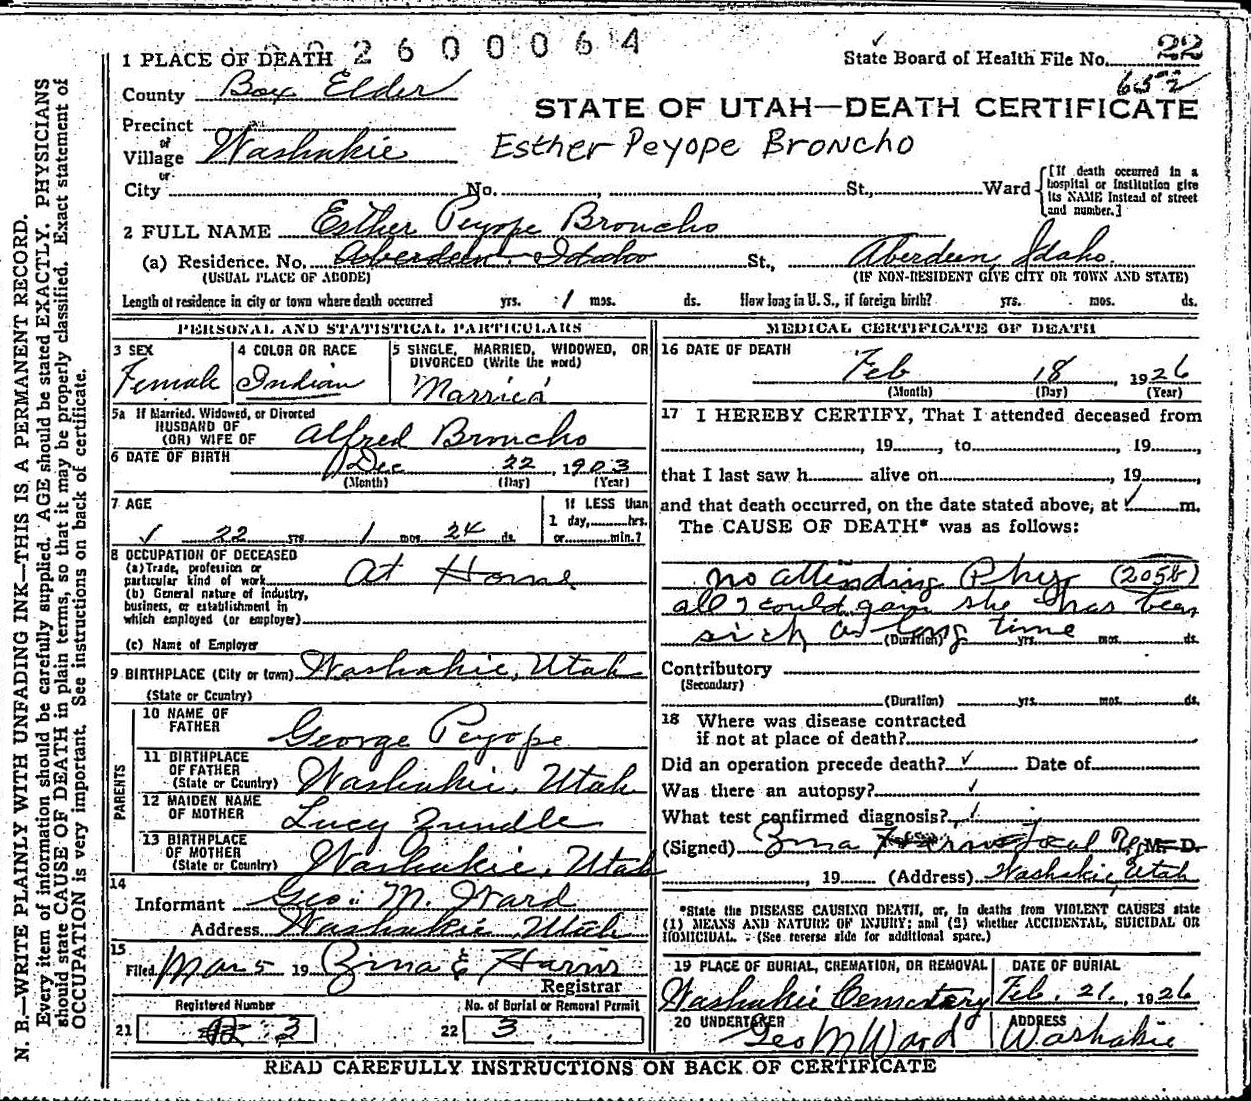 2600064
1 PLACE OF DEATH
State Board of Health File No. 22
652
County Box Elder
STATE OF UTAH—DEATH CERTIFICATE
Precinct
or
Village Washakie
Esther Peyope Broncho
or
City No. , St., Ward
[If death occurred in a hospital or institution give its NAME instead of street and number.]
2 FULL NAME Esther Peyope Broncho
(a) Residence. No. Aberdeen Idaho St., Aberdeen Idaho.
(USUAL PLACE OF ABODE) (IF NON-RESIDENT GIVE CITY OR TOWN AND STATE)
Length of residence in city or town where death occurred yrs. 1 mos. ds. How long in U. S., if foreign birth? yrs. mos. ds.
PERSONAL AND STATISTICAL PARTICULARS
3 SEX
Female
4 COLOR OR RACE
Indian
5 SINGLE, MARRIED, WIDOWED, OR DIVORCED (Write the word)
Married
5a If Married, Widowed, or Divorced
HUSBAND OF
(OR) WIFE OF Alfred Broncho
6 DATE OF BIRTH Dec 22, 1903
(Month) (Day) (Year)
7 AGE
22 yrs. 1 mos. 24 ds.
If LESS than
1 day, hrs.
or min.?
8 OCCUPATION OF DECEASED
(a) Trade, profession or
particular kind of work At Home
(b) General nature of industry,
business, or establishment in
which employed (or employer)
(c) Name of Employer
9 BIRTHPLACE (City or town) Washakie, Utah
(State or Country)
PARENTS
10 NAME OF
FATHER George Peyope
11 BIRTHPLACE
OF FATHER
(State or Country) Washakie, Utah
12 MAIDEN NAME
OF MOTHER Lucy Zundle
13 BIRTHPLACE
OF MOTHER
(State or Country) Washakie, Utah
14
Informant Geo. M. Ward
Address Washakie, Utah
15
Filed Mar 5 19 Zina E Harris
Registrar
Registered Number No. of Burial or Removal Permit
21 3 22 3
MEDICAL CERTIFICATE OF DEATH
16 DATE OF DEATH
Feb 18, 1926
(Month) (Day) (Year)
17 I HEREBY CERTIFY, That I attended deceased from
, 19 , to , 19 ,
that I last saw h alive on , 19 ,
and that death occurred, on the date stated above, at m.
The CAUSE OF DEATH* was as follows:
no attending Phys (205b)
all I could gain she has been
sick a long time
(Duration) yrs. mos. ds.
Contributory
(Secondary)
(Duration) yrs. mos. ds.
18 Where was disease contracted
if not at place of death?
Did an operation precede death? Date of
Was there an autopsy?
What test confirmed diagnosis?
(Signed) Zina Harris Local Reg M. D.
, 19 (Address) Washakie, Utah
*State the DISEASE CAUSING DEATH, or, in deaths from VIOLENT CAUSES state
(1) MEANS AND NATURE OF INJURY; and (2) whether ACCIDENTAL, SUICIDAL OR
HOMICIDAL. (See reverse side for additional space.)
19 PLACE OF BURIAL, CREMATION, OR REMOVAL DATE OF BURIAL
Washakie Cemetery Feb. 21, 1926
20 UNDERTAKER ADDRESS
Geo M Ward Washakie
READ CAREFULLY INSTRUCTIONS ON BACK OF CERTIFICATE
N. B.—WRITE PLAINLY WITH UNFADING INK—THIS IS A PERMANENT RECORD.
Every item of information should be carefully supplied. AGE should be stated EXACTLY. PHYSICIANS
should state CAUSE OF DEATH in plain terms, so that it may be properly classified. Exact statement of
OCCUPATION is very important. See instructions on back of certificate.